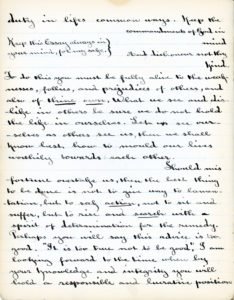 duty in lifes common ways. Keep the
commandments of God in
Keep this Essay always in
mind
your mind, for my sake.
And dishonour not thy
kind.
To do this you must be fully alive to the weak-
nesses, follies, and prejudices of others, and
also of thine own. What we see and dis-
like in others be sure we do not harbour
the like in ourselves. Let us see our-
selves as others see us, then we shall
know best, how to mould our lives
worthily towards each other.
Should mis-
fortune overtake us, then the best thing
to be done is not to give way to lamen-
tation, but to say action, not to sit and
suffer, but to rise and search with a
spirit of determination for the remedy.
Perhaps you will say this advice is too
good. "It is too true not to be good". I am
looking forward to the time when by
your knowledge and integrity you will
hold a responsible and lucrative position